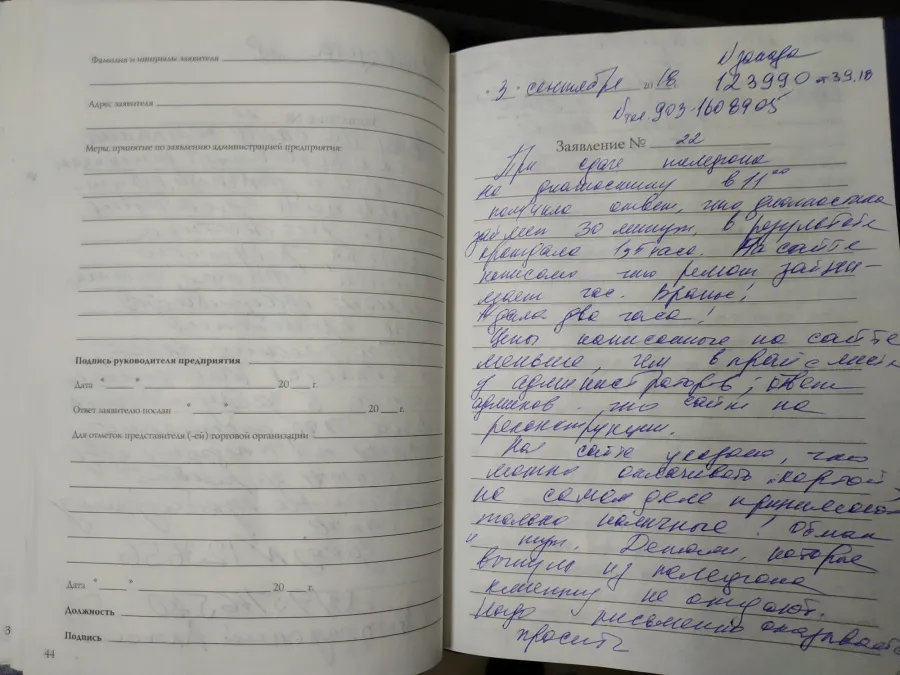 Фамилия и инициалы заявителя
Адрес заявителя
Меры, принятые по заявлению администрацией предприятия:
Подпись руководителя предприятия
Дата " " 20 г.
Ответ заявителю послан " " 20 г.
Для отметок представителя (-ей) торговой организации
Дата " " 20 г.
Должность
Подпись
44
3
N заказа
"3" сентября 2018 123990 от 3.9.18
N тел. 903-1608905
Заявление № 22
При сдаче телефона
на диагностику в 11 00
получила ответ, что диагностика
займет 30 минут, в результате
прождала часа. На сайте
написано что ремонт зайни-
мает час. Вранье!
Ждала два часа!
Цены написанные на сайте
меньше, чем в прайс листе
у администраторов; ответ
админов что сайт на
реконструкции.
На сайте указано, что
можно оплачивать картой,
на самом деле принимают
только наличные! Обман
и тут. Детали, которые
вынули из телефона
клиенту не отдают.
Когда письменно отказываете
просить